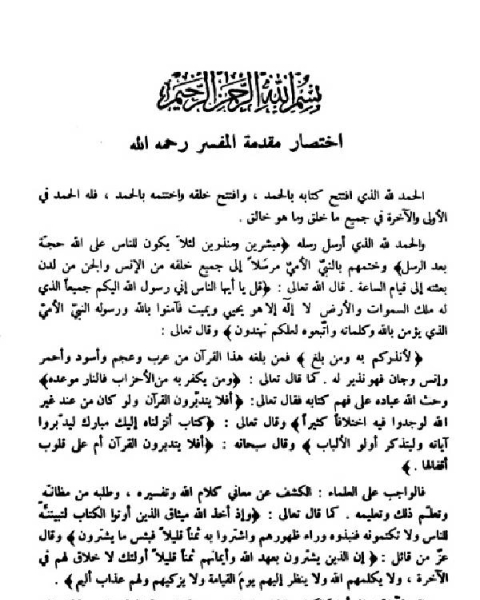 بسم الله الرحمن الرحيم
اختصار مقدمة المفسر رحمه الله
الحمد لله الذي افتتح كتابه بالحمد ، وافتتح خلقه واختتمه بالحمد ، فله الحمد في
الأولى والآخرة في جميع ما خلق وما هو خالق .
والحمد لله الذي أرسل رسله ﴿مبشرين ومنذرين لئلاّ يكون للناس على الله حجة
بعد الرسل﴾ وختمهم بالنبيّ الأميّ مرسَلاً إلى جميع خلقه من الإنس والجن من لدن
بعثته إلى قيام الساعة . قال الله تعالى : ﴿قل يا أيها الناس إني رسول الله اليكم جميعاً الذي
له ملك السموات والأرض لا إله إلا هو يحيي ويميت فآمنوا بالله ورسوله النبيّ الأميّ
الذي يؤمن بالله وكلماته واتّبعوه لعلكم تهتدون﴾ وقال تعالى :
﴿لأنذركم به ومن بلغ﴾ فمن بلغه هذا القرآن من عرب وعجم وأسود وأحمر
وإنس وجان فهو نذير له . كما قال تعالى : ﴿ومن يكفر به من الأحزاب فالنار موعده﴾
وحث الله عباده على فهم كتابه فقال تعالى: ﴿أفلا يتدبّرون القرآن ولو كان من عند غير
الله لوجدوا فيه اختلافاً كثيراً﴾ وقال تعالى : ﴿كتاب أنزلناه إليك مبارك ليدّبروا
آياته وليتذكر أولو الألباب﴾ وقال سبحانه : ﴿أفلا يتدبرون القرآن أم على قلوب
أقفالها .﴾
فالواجب على العلماء : الكشف عن معاني كلام الله وتفسيره ، وطلبه من مظانّه
وتعلّم ذلك وتعليمه . كما قال تعالى : ﴿وإذ أخذ الله ميثاق الذين أوتوا الكتاب لتبيننّه
للناس ولا تكتمونه فنبذوه وراء ظهورهم واشتروا به ثمناً قليلاً فبئس ما يشترون﴾ وقال
عزّ من قائل : ﴿إن الذين يشترون بعهد الله وأيمانهم ثمناً قليلاً أولئك لا خلاق لهم في
الآخرة ، ولا يكلمهم الله ولا ينظر إليهم يوم القيامة ولا يزكيهم ولهم عذاب أليم﴾ .